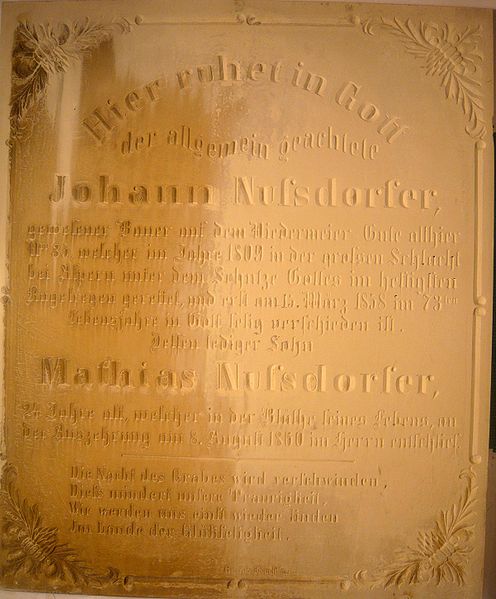 Hier ruhet in Gott
der allgemein geachtete
Johann Nufsdorfer,
gewesener Bauer auf dem Niedermeier Gute allhier
welcher im Jahre 1809 in der großen Schlacht
bei Aspern unter dem Schutze Gottes im heftigsten
Kugelregen gerettet, und erst am 15. März 1858 im 73ten
Lebensjahre in Gott selig verschieden ist.
Dessen lediger Sohn
Mathias Nufsdorfer,
24 Jahre alt, welcher in der Blüthe seines Lebens, an
der Auszehrung am 8. August 1860 im Herrn entschlief.
Die Nacht des Grabes wird verschwinden,
Dieß mindert unsere Traurigkeit,
Wir werden uns einst wieder finden
Im Lande der Glükseligkeit.